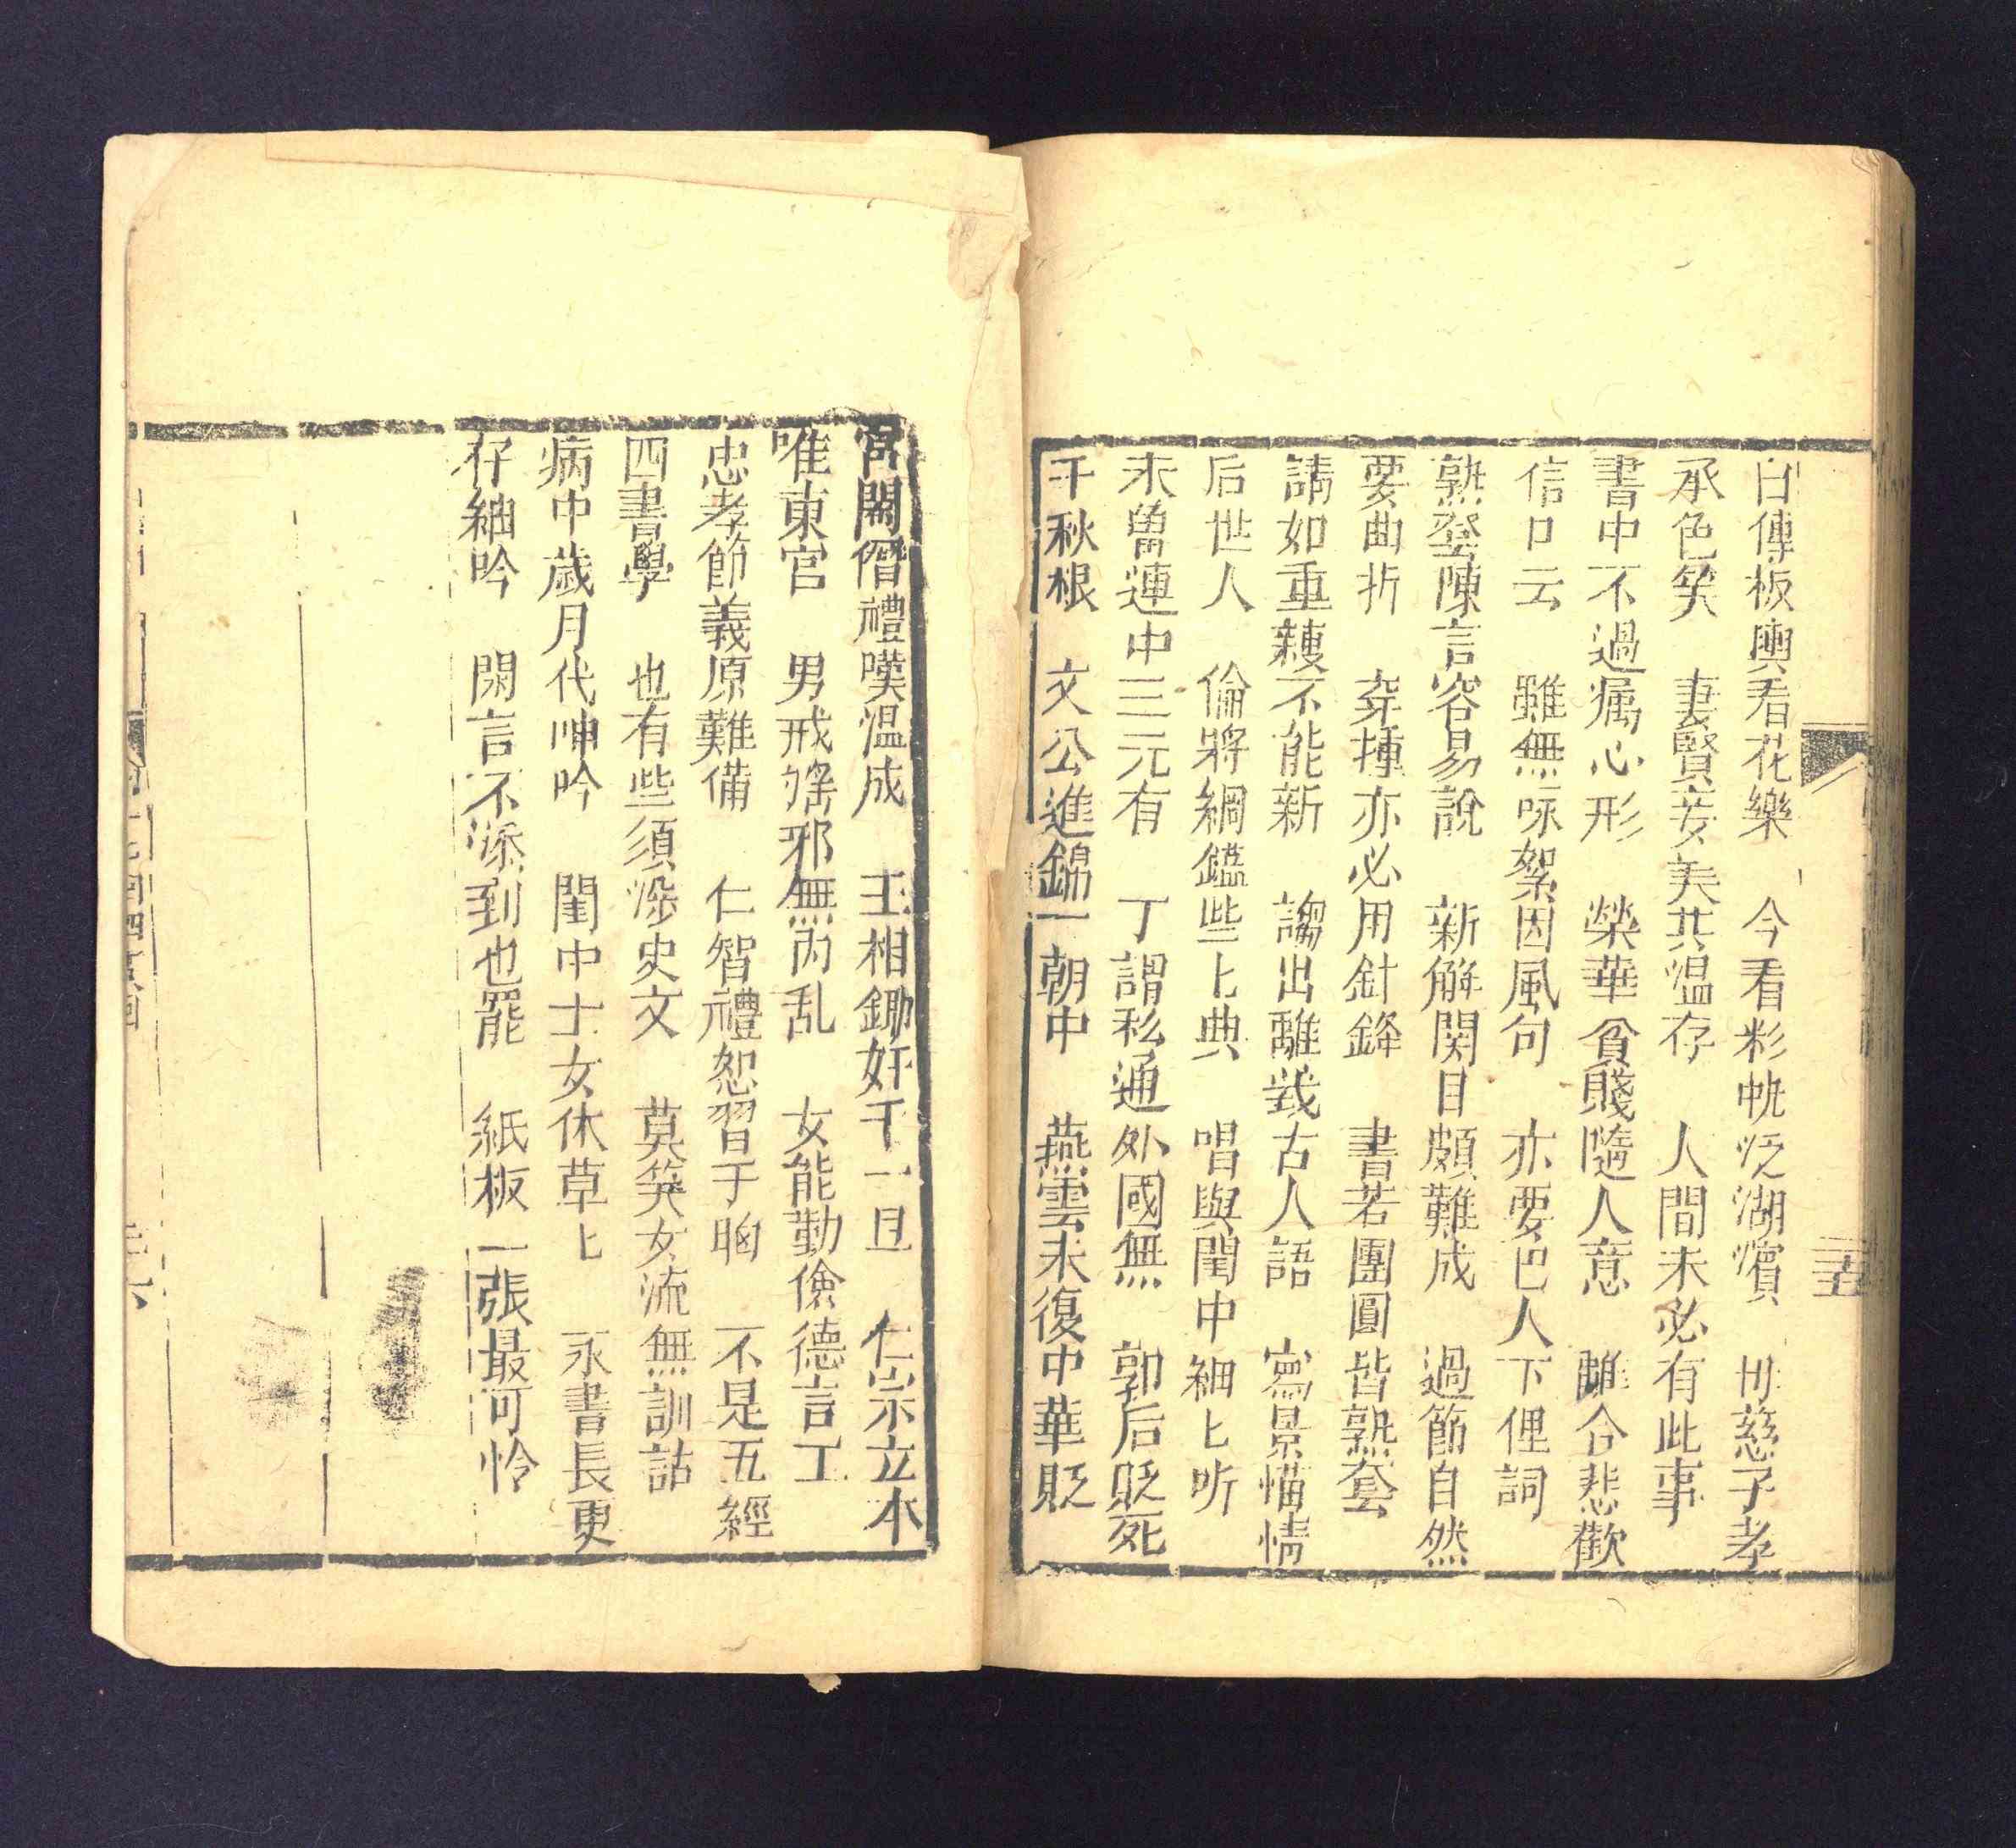 白傳板輿看花樂　今看彩帆泛湖濱　毌慈子孝
承色笑　妻賢妾美共温存　人間未必有此事
書中不過属心形　榮華貧賤隨人意　離合悲歡
信口云　雖無咏絮因風句　亦要巴人下俚詞
熟登陳言容易説　新觧関目頗難成　過節自然
要曲折　穿揷亦必用針鋒　書若團圓皆熟套
請如重韃不能新　謅出離戏古人語　寫景描情
后世人　倫將綱鑑些匕典　唱與閨中細匕听
未曽連中三元有　丁謂私通外國無　郭后貶死
千秋根　文公進錦一朝中　燕雲未復中華貶
宮闕僭禮嘆温成　王相鋤奸千一旦　仁宗立本
唯東宫　男戒婬邪無內乱　女能勤儉德言工
忠孝節義原難備　仁智禮恕習于胸　不是五經
四書學　也有些須涉史文　莫笑女流無訓詁
病中歲月代呻吟　閨中士女休草匕　永書長更
仔紬吟　閑言不添到也罷　紙板一張最可怜
三五